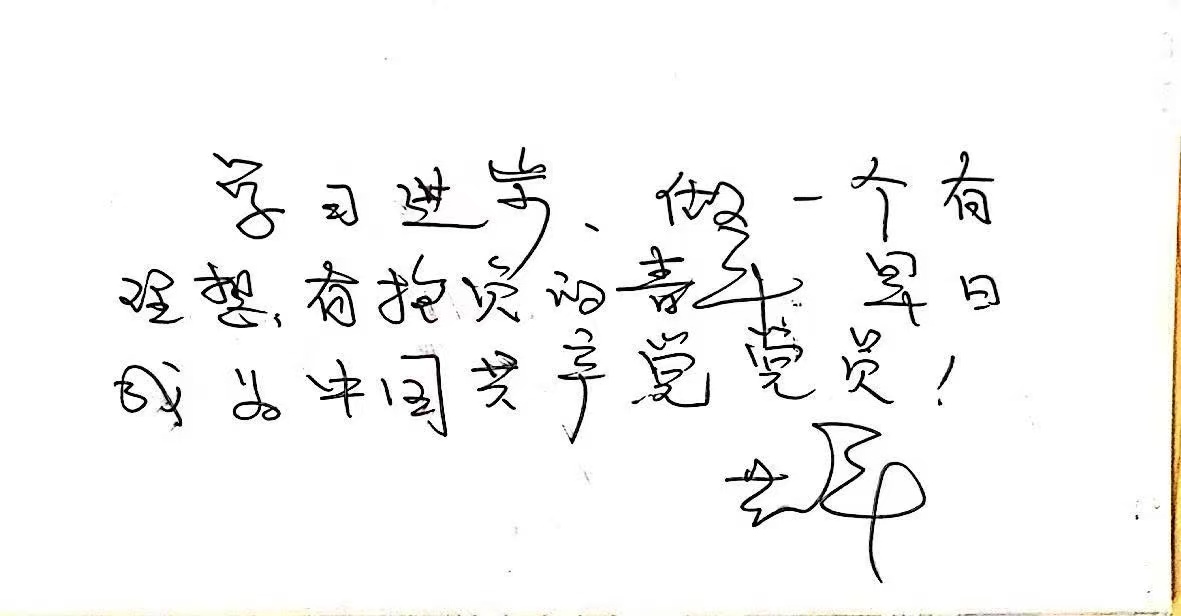 学习进步、做一个有
理想、有抱负的青年.早日
成为中国共产党党员！